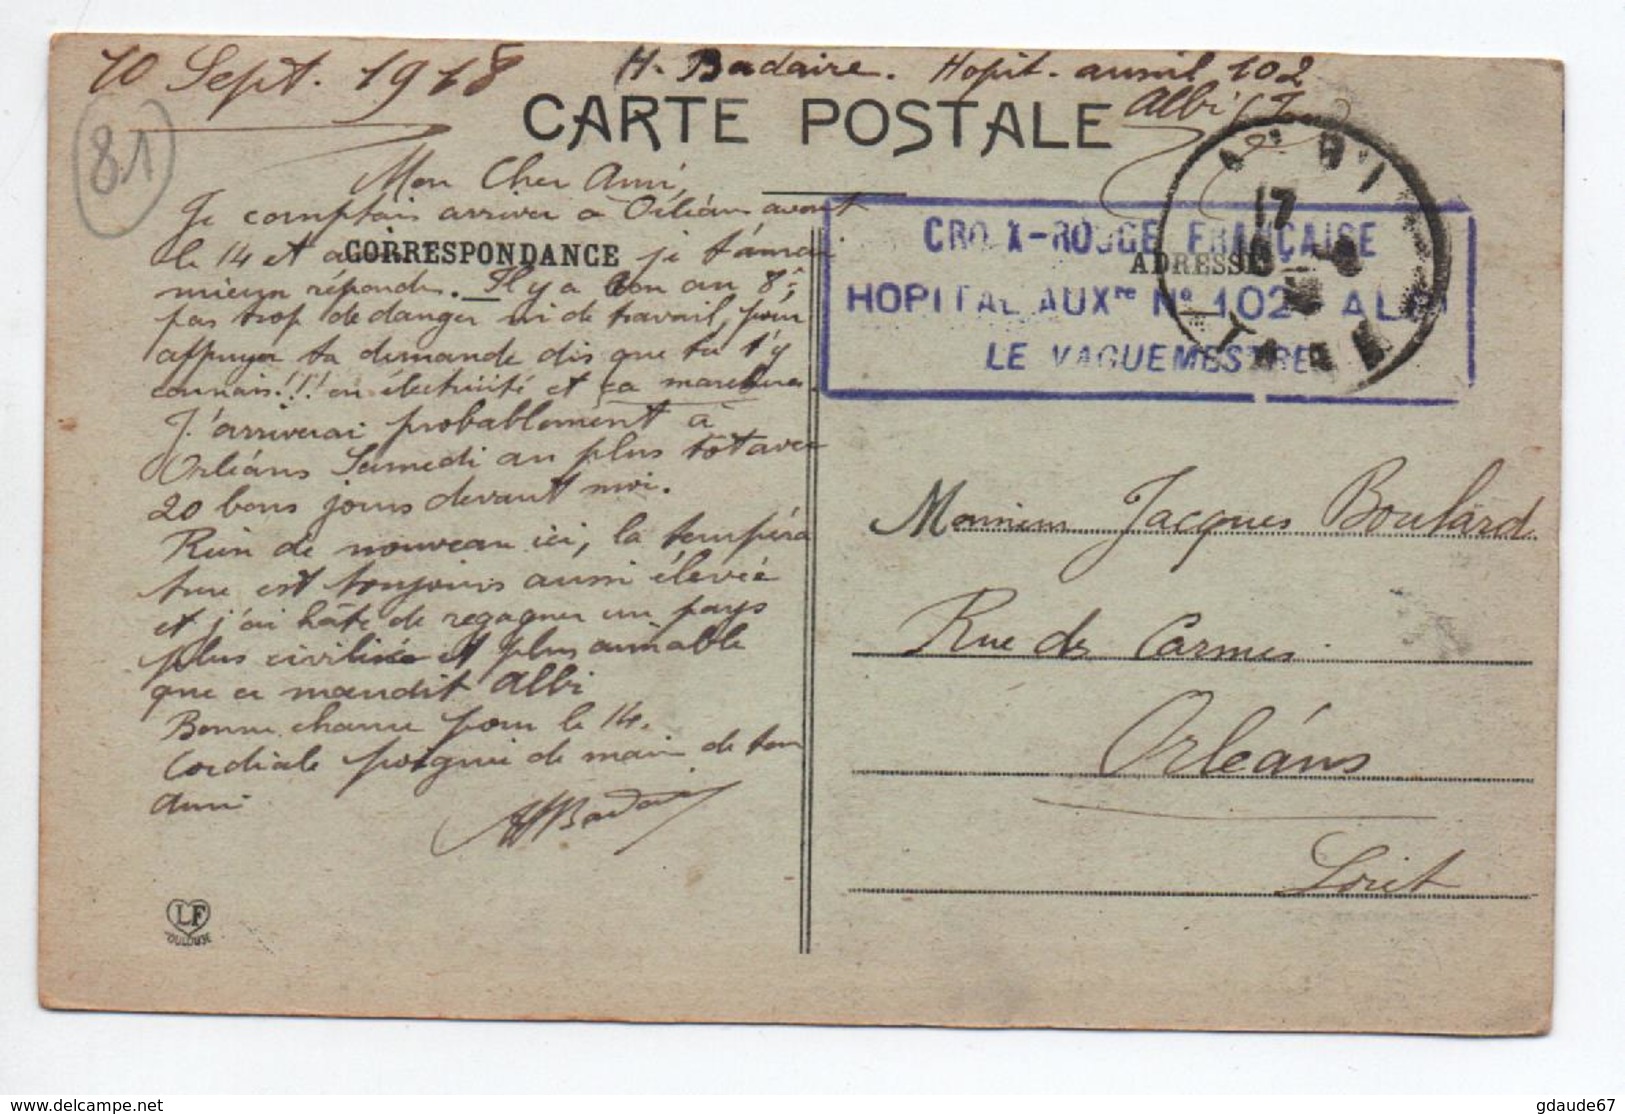 10 Sept. 1918
H. Badaire. Hopit. auxil 102
Albi
81
CARTE POSTALE
Mon Cher Ami,
Je comptais arriver à Orléans avant
le 14 et
CORRESPONDANCE
je t'aurai
mieux répondu. Il y a bon au 8e,
pas trop de danger ni de travail, pour
appuyer ta demande dis que tu t'y
connais!!! en électricité et ça marchera.
J'arriverai probablement à
Orléans Samedi au plus tôt avec
20 bons jours devant moi.
Rien de nouveau ici, la tempéra
ture est toujours aussi élevée
et j'ai hâte de regagner un pays
plus civilisé et plus aimable
que ce maudit Albi
Bonne chance pour le 14.
Cordiale poignée de main de ton
ami
HBadaire
LF
TOULOUSE
CROIX-ROUGE FRANÇAISE
ADRESSE
HOPITAL AUXre No 102 ALBI
LE VAGUEMESTRE
ALBI
17
TARN
Monsieur Jacques Boulard
Rue des Carmes
Orléans
Loiret
www.delcampe.net
gdaude67